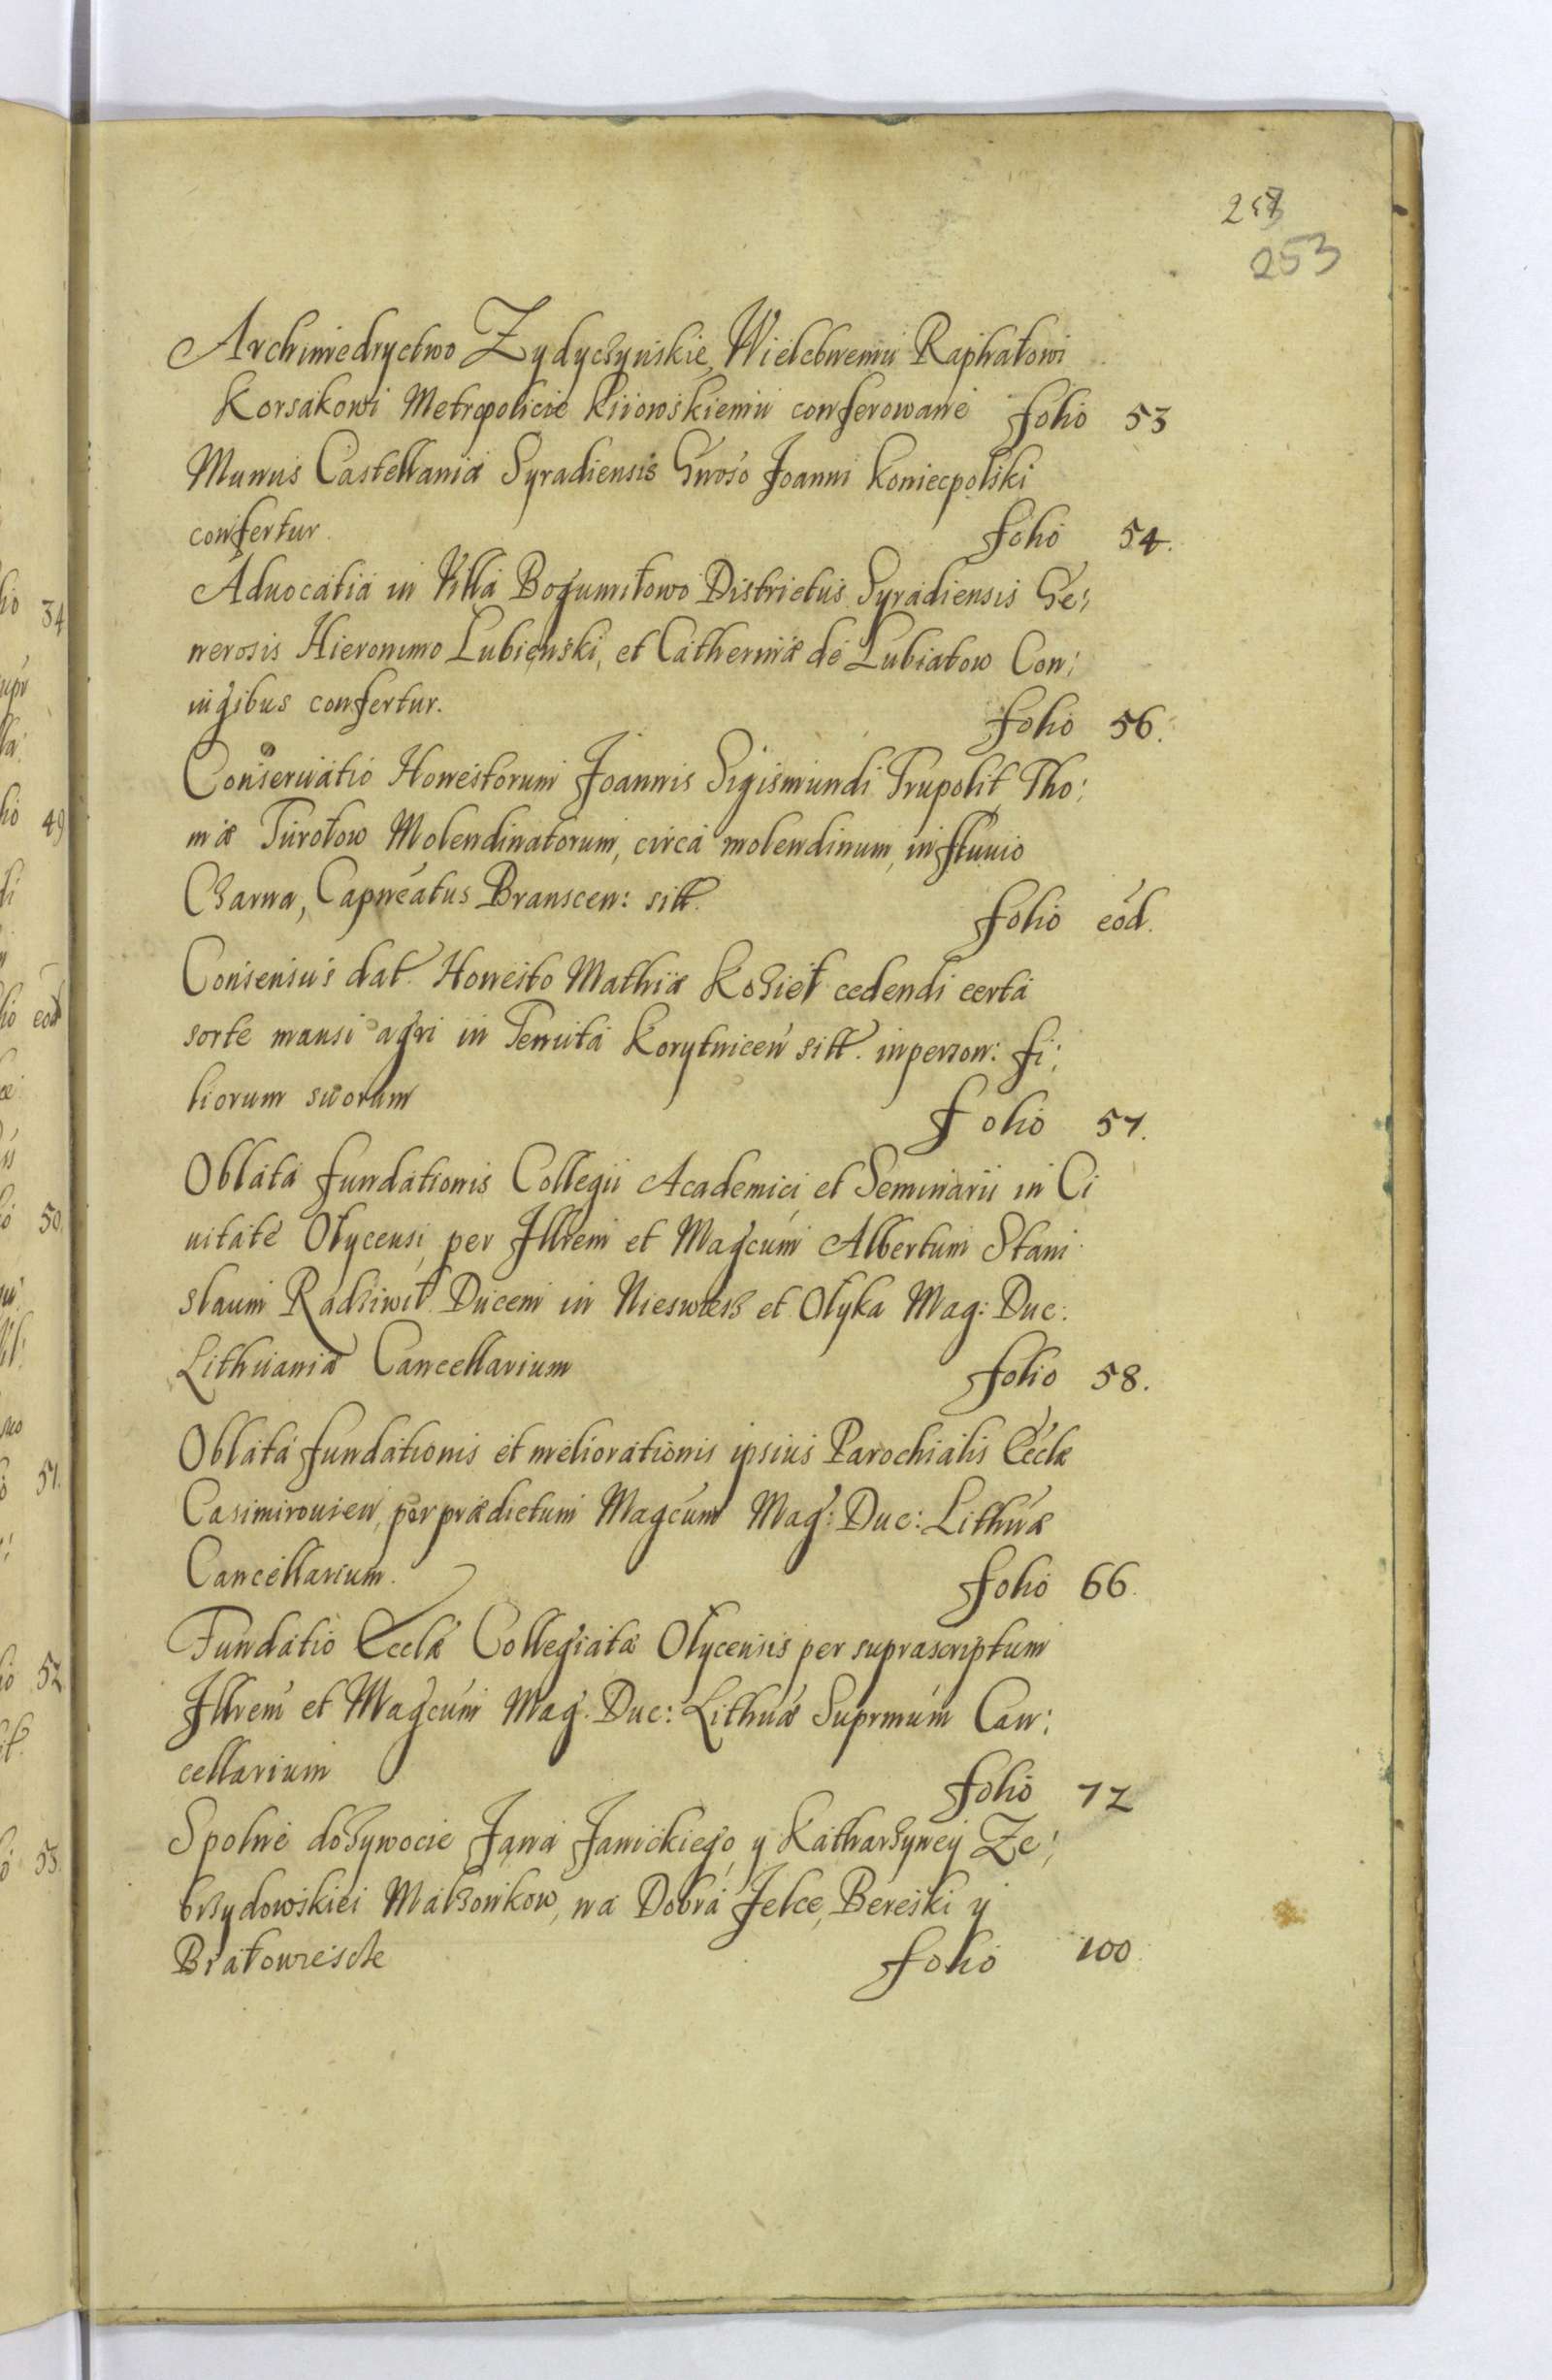 253
Archimedryctwo Zydyczynskie, Wielebnemu Raphałowi
Korsakowi Metropolicie kiiowskiemu conferowane folio 53
Munus Castellaniæ Syradiensis Gnoso Joanni Koniecpolski
confertur. folio 54.
Aduocatia in Villa Bogumiłowo Districtus Syradiensis Ge:
nerosis Hieronimo Lubienski, et Catherinæ de Lubiatow Con:
iugibus confertur. folio 56.
Conseruatio Honestorum Joannis Sigismundi Trupolit Tho:
mæ Turołow Molendinatorum, circa molendinum, in fluuio
Czarna, Capneatus Branscen: sitt. folio eod.
Consensus dat. Honesto Mathiæ Kozieł cedendi certa
sorte mansi agri in Tenuta Korytnicen sitt. in person: fi:
liorum suorum folio 57.
Oblata fundationis Collegii Academici et Seminarii in Ci
uitate Ołycensi, per Illrem et Magcum Albertum Stani
slaum Radziwił Ducem in Nieswiesz et Ołyka Mag: Duc:
Lithuaniæ Cancellarium folio 58.
Oblata fundationis et meliorationis ipsius Parochialis Eccłæ
Casimirouien, per prædictum Magcum Mag: Duc: Lithuæ
Cancellarium. folio 66.
Fundatio Ecclæ Collegiatæ Ołycensis per suprascriptum
Illrem et Magcum Mag. Duc: Lithuæ Suprmum Can:
cellarium folio 72
Spolne dozywocie Jana Janickiego, y Katharzyney Ze:
brzydowskiei Małzonkow, na Dobra Jelce, Bereski y
folio 100